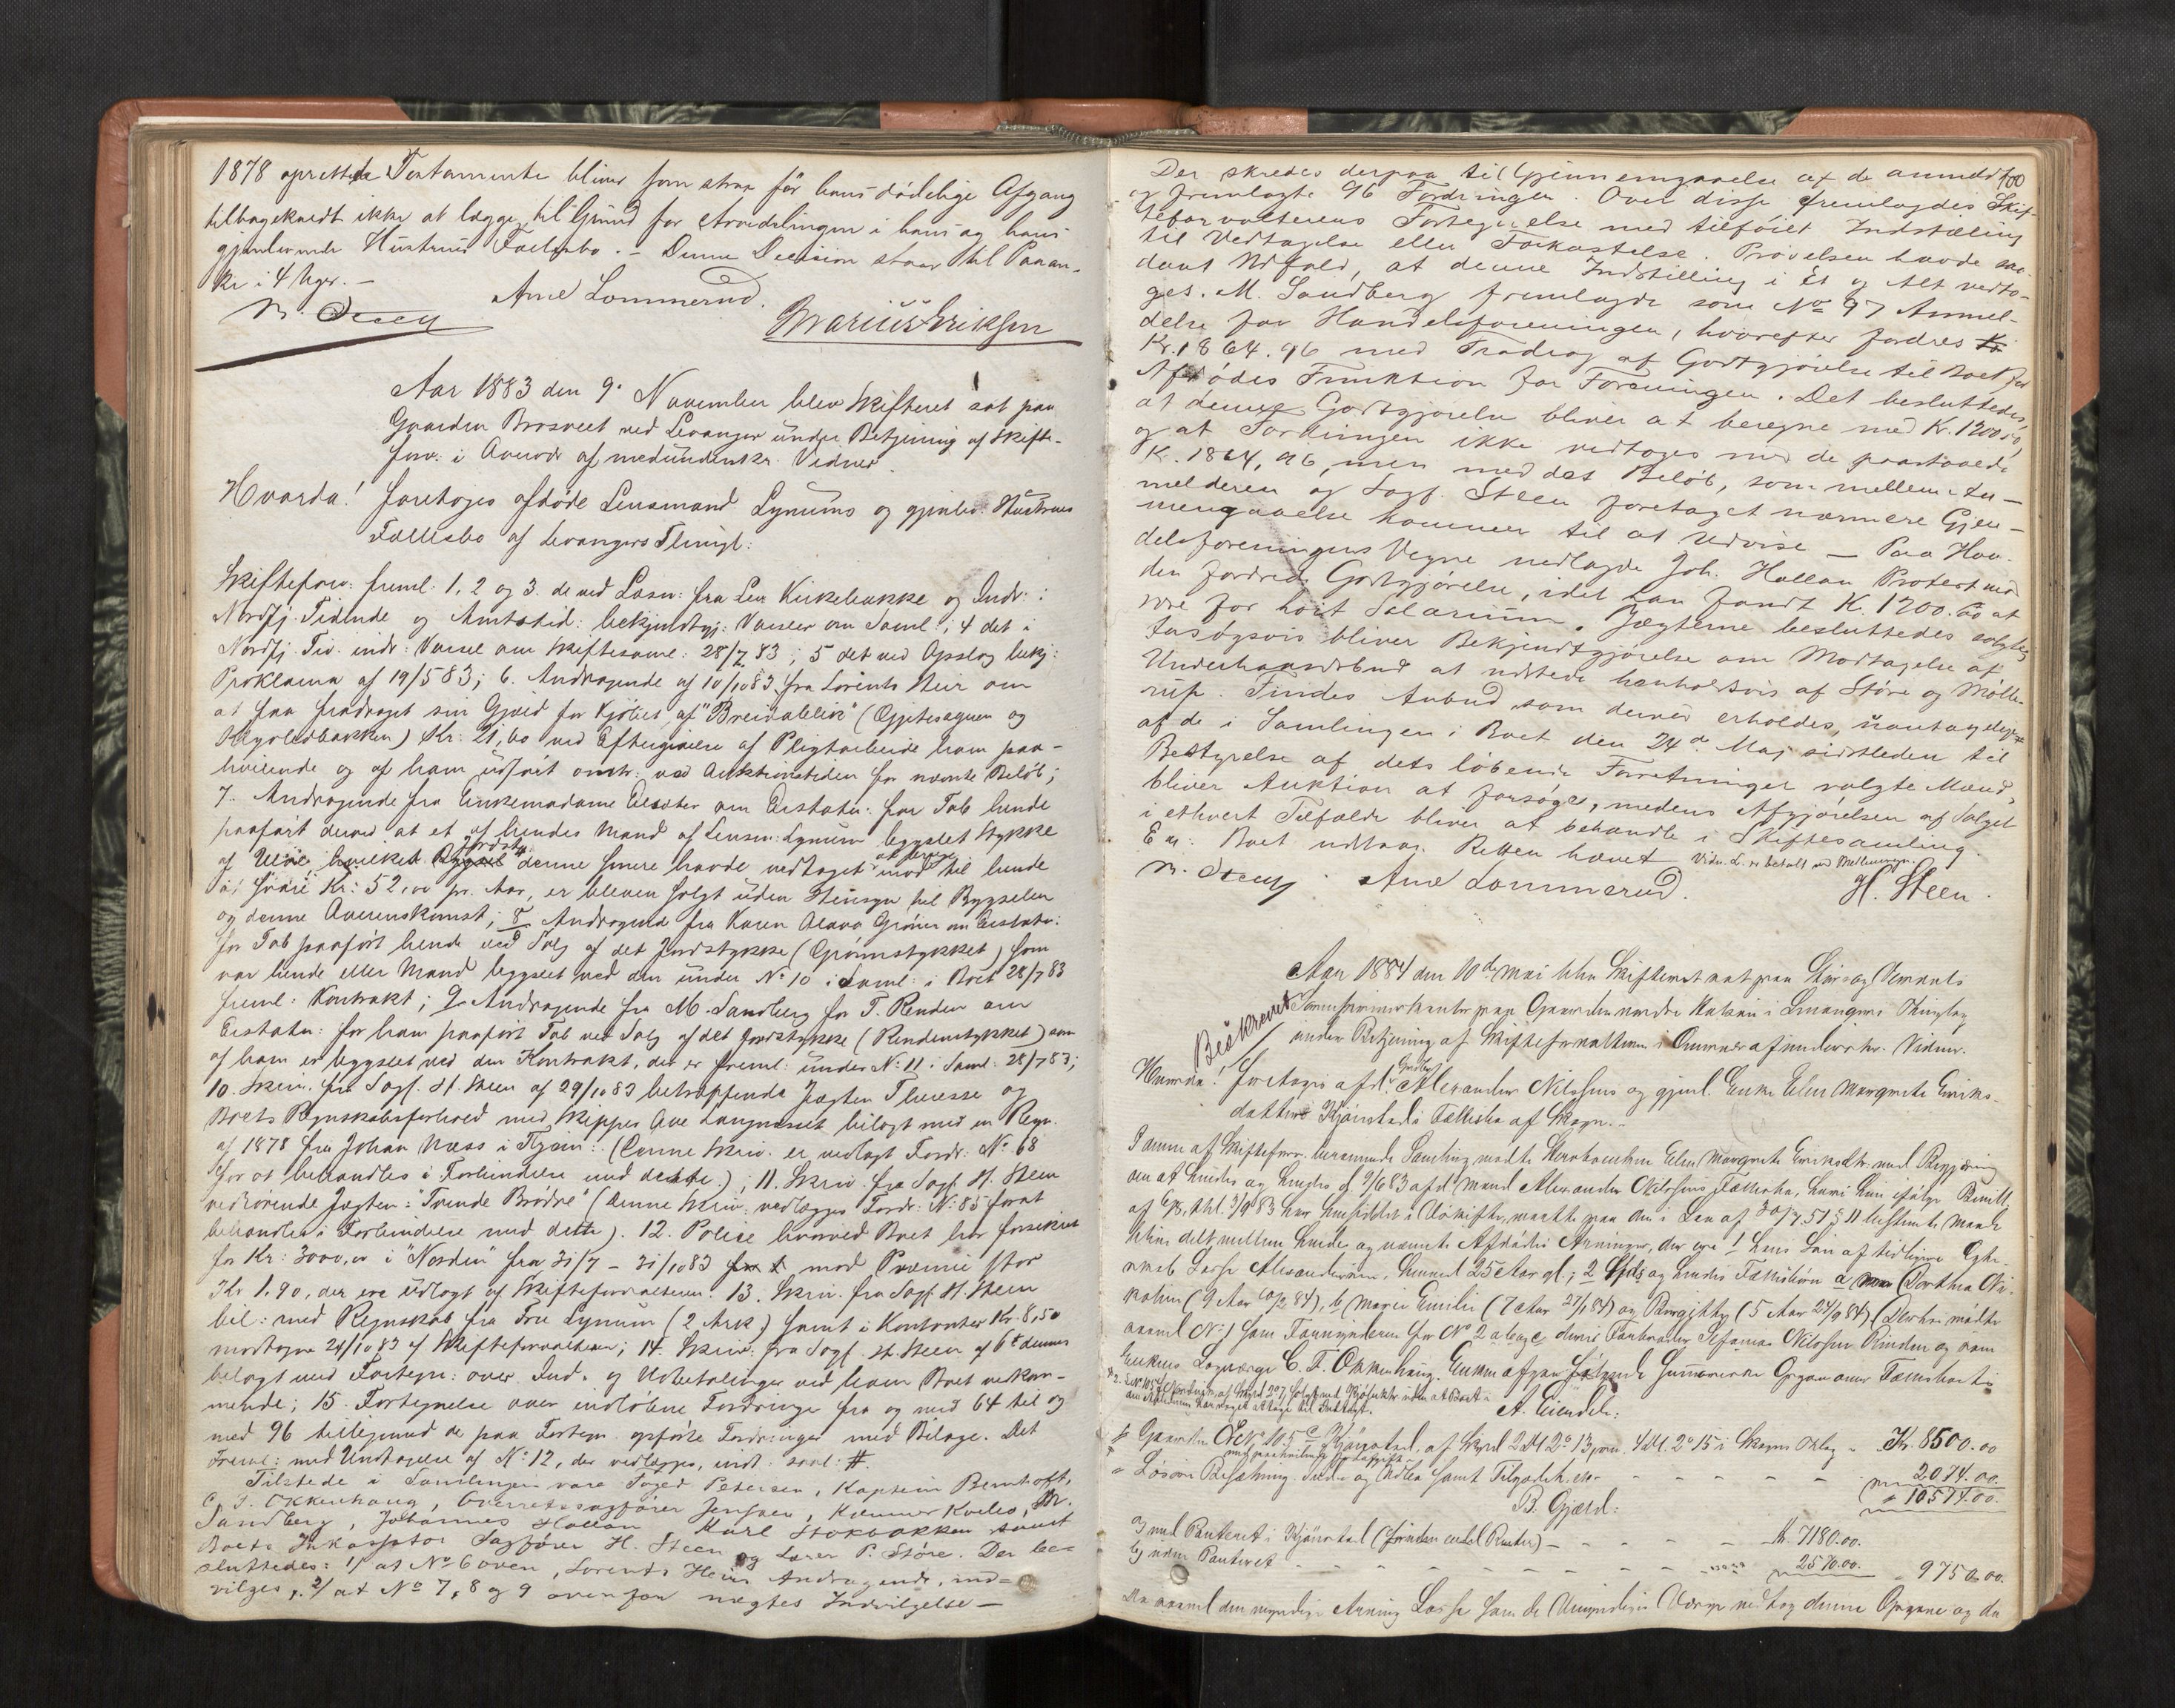 1878 oprettede Testamente bliver som strax før hans dødelige Afgang
tilbagekaldt ikke at lægge til Grund for Arvedelingen i hans og hans
gjenlevende Hustrues Fællesbo. – Denne Decision staar til Paaan-
ke i 4 Uger. –
Arne Lommerud.
Marius Eriksen
Aar 1883 den 9. November blev Skifteret sat paa
Gaarden Brosveet ved Levanger under Betjening af Skifte-
forv. i Overvær af medundertkr. Vidner.
Hvorda! foretoges afdøde Lensmand Lynums og gjenlev. Hustrues
Fællesbo af Levangers Thingl:
Skifteforv: freml. 1, 2 og 3. de ved Læsn: fra Lev Kirkebakke og Indr: i
Nordtj. Tidende og Amtstid: bekjendtgj: Varsler om Saml; 4 det i
Nordtj. Tid. indr: Varsel om Skiftesaml: 28/7 83; 5 det ved Opslag bekj:
Proklama af 19/5 83; 6. Andragende af 10/10 83 fra Lorents Heir om
at faa fradraget sin Gjæld for Kjøbet af "Breidablik" (
) Kr: 21,60 ved Eftergivelse af Pligtarbeide ham paa-
hvilende og af ham udført omtr. ved Auktionstiden for nævnte Beløb;
7. Andragende fra Enkemadame om Erstatn: for Tab hende
paaført derved at et af hendes Mand af Lensm: Lynum bygslet Stykke
af hvilket Bygsel Jordst. denne havde vedtaget mod at til hende
at svare Kr: 52,00 pr. Aar, er bleven solgt uden Hensyn til Bygselen
og denne Overenskomst; 8. Andragende fra Karen Olava Grønn om Erstatn:
for Tab paaført hende ved Salg af det Jordstykke (Grønnstykket) som
var hende eller Mand bygslet ved den under No 10 i Saml: i Boet 28/7 83
freml: Kontrakt; 9. Andragende fra M. Sandberg for T. Renden om
Erstatn: for ham paaført Tab ved Salg af det Jordstykke (Rindenstykket) som
af ham er bygslet ved den Kontrakt, der er freml: under No: 11 i Saml: 28/7 83;
10. Skriv. fra Sagf. H. Steen af 29/10 83 betræffende Jægten Therese og
Boets Regnskabsforhold med Skipper Ove Langnesset bilagt med en Regn.
af 1878 fra Johan Næss i (Denne Skriv. er vedlagt Fordr: No 68
for at behandles i Forbindelse med dette.); 11. Skriv. fra Sagf. H. Steen
vedrørende Jægten: "Trende Brødre" (denne Skriv. vedlægges Fordr: No: 85 forat
behandles i Forbindelse med dette). 12. Police hvorved Boet har forsikret
for Kr: 3000,00 i "Norden" fra 31/7 – 31/10 83 mod Præmie stor
Kr 1.90, der ere udlagt af Skifteforvalteren. 13. Skriv. fra Sagf. H. Steen
bil: med Regnskab fra Fru Lynum (2 Ark) samt i Kontanter Kr. 8,50
modtagne 24/10 83 af Skifteforvalteren; 14. Skriv: fra Sagf. H. Steen af 6te dennes
belagt med Fortegn: over Ind- og Udbetalinger ved ham Boet vedkom-
mende; 15. Fortegnelse over indløbne Fordringer fra og med 64 til og
med 96 tilligemed de paa Fortegn. opførte Fordringer med Bilage. Det
Freml: med Undtagelse af No: 12, der vedlægges, indt: saal: #.
Tilstede i Samlingen vare Foged Petersen, Kaptein Bernhoft,
C. F. Okkenhaug, Overretssagfører Jenssen, Kæmner Kvello, M.
Sandberg, Johannes Hallan, Karl Stokbakken samt
Boets Inkassator Sagfører H. Steen og Lærer P. Støre. Der be-
sluttedes: 1/ at No 6 oven, Lorents Heirs Andragende, ind-
vilges, 2/ at No 7, 8 og 9 ovenfor nægtes Indvilgelse –
100
Der skredes derpaa til Gjennemgaaelse af de anmeldte
og fremlagte 96 Fordringer. Over disse fremlagdes Skif-
teforvalterens Fortegnelse med tilføiet Indstilling
til Vedtagelse eller Forkastelse. Prøvelsen havde saa-
dant Udfald, at denne Indstilling i Et og Alt vedto-
ges. M. Sandberg fremlagde som No 97 Anmel-
delse for Handelsforeningen, hvorefter fordres Kr
Kr. 1864.96 med Fradrag af Godtgjørelse til Boet for
Afdødes Funktion for Foreningen. Det besluttedes,
at denne Godtgjørelse bliver at beregne med Kr. 1200,00,
og at Fordringen ikke vedtoges med de paastaaede
K. 1864,96, men med det Beløb, som mellem An-
melderen og Sagf. Steen foretaget nærmere Gjen-
nemgaaelse kommer til at udvise – Paa Han-
delsforeningens Vegne nedlagde Joh. Hallan Protest mod
den fordrede Godtgjørelse, idet han fandt K. 1200.00 at
være for høit Salarium. Jægterne besluttedes solgte,
forsøgsvis bliver Bekjendtgjørelse om Modtagelse af
Underhaandsbud at udstede henholdsvis af Støre og Mølle-
rup. Findes Anbud, som derved erholdes, uantageligt
af de i Samlingen i Boet den 24de Mai sidstleden til
Bestyrelse af dets løbende Forretninger valgte Mænd,
bliver Auktion at forsøge, medens Afgjørelsen af Salget
i ethvert Tilfælde bliver at behandle i Skiftesamling.
Ex: Boet udstaar. Retten hævet Vidn. L. er betalt ved Meddelingen.
Arne Lommerud.
H. Steen.
Beskrevet
Aar 1884 den 10de Mai blev Skifteret sat paa
paa Gaarden nordre Halsan i Levangers Thinglag
under Betjening af Skifteforvalteren i Overvær af underskr. Vidner.
Hvorda! foretoges afd. Gaardbr. Alexander Nilssens og gjenl. Enke Elen Margrete Eriks-
datters Kjønstads Fællesbo af Skogn. –
I denne af Skifteforv. berammede Samling mødte Sterbboenken Elen Margrete Eriksdtr. med Begjæring
om at hendes og hendes d. 9/6 83 afd. Mand Alexander Nilssens Fællesbo, hvori hun ifølge Bevill.
af 3/9 83 har hensiddet i Uskifte, maatte paa den i Lov af 30/7 51 § 11 bestemte Maade
blive delt mellem hende og nævnte Afdødes Arvinger, der ere 1 hans Søn af tidligere Egte-
skab Lasse Alexandersen, henved 25 Aar gl.; 2 hans og hendes Fællesbørn a Dorthea Ni-
koline (9 Aar 10/2 84), b Marie Emilie (7 Aar 27/1 84) og Borgitte (5 Aar 24/9 84) (Derhos mødte
saavel No 1 som Formynderen for No 2 a, b og c deres Farbroder Stefanus Nilssen Rinden og som
Enkens Lagværge C. F. Okkenhaug. Enken afgav følgende Summariske Opgave over Fællesboets
A. Eiendele:
Gaarden No 105 c Kjønstad, af Skyld 2 Dl 2 o 13, 4 Dl. 2 o 15 i Skogns Thlag – Kr. 8500.00
Løsøre Besætning samt Tilgodeh. – – – – – – 2074.00
10574.00.
B. Gjæld:
a) med Panteret i Kjønstad – – – – – Kr. 7180.00.
b) uden Panteret – – – – – – 2570.00. 9750.00.
Da saavel den myndige Arving Lasse som de Umyndiges Værge vedtog denne Opgave og da